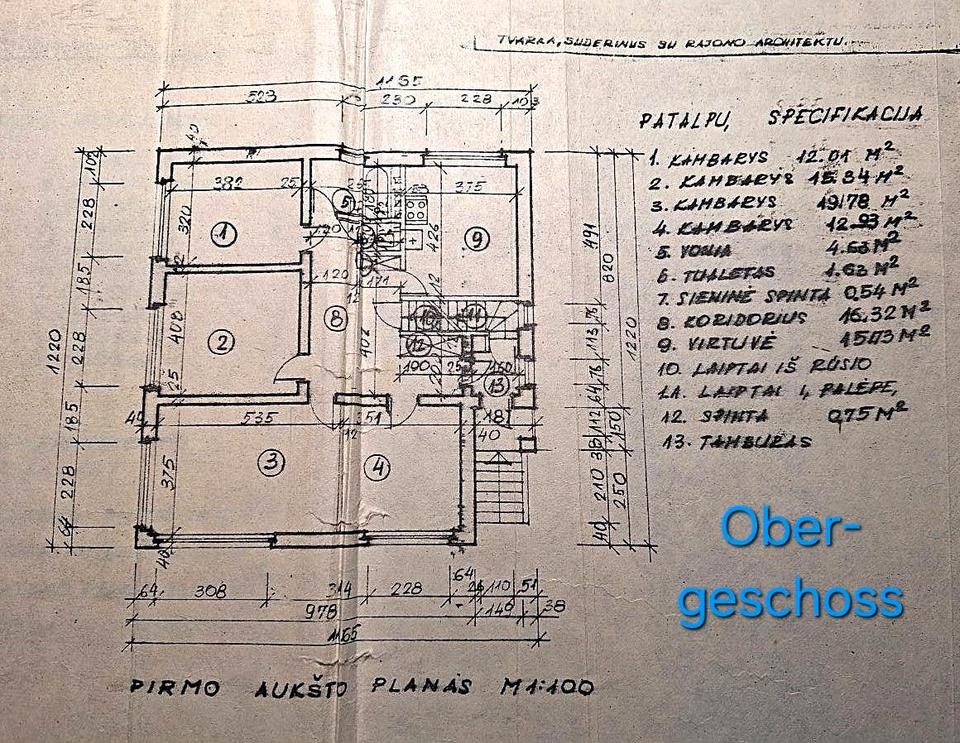 TVARKA, SUDERINUS SU RAJONO ARCHITEKTU.
1195
523 230 228 103
PATALPŲ SPECIFIKACIJA
1. KAMBARYS 12.01 M²
2. KAMBARYS 15.34 M²
3. KAMBARYS 19.78 M²
4. KAMBARYS 12.93 M²
5. VONIA 4.63 M²
6. TUALETAS 1.63 M²
7. SIENINĖ SPINTA 0,54 M²
8. KORIDORIUS 16.32 M²
9. VIRTUVĖ 15.03 M²
10. LAIPTAI IŠ RŪSIO
11. LAIPTAI Į PALĖPĘ,
12. SPINTA 0,75 M²
13. TAMBURAS
40
382 25 375
320
1 5 9
426
120 171
12 12
408
2 8 11
402
12
190 160
25
13
40 535 351 181
12 40
375
3 4
102
228
185
228
185
228
64
1220
40
491
820
1220
113
112
150
38
210
250
40
64 308 314 228 64 26 110 51
978 149 38
1165
PIRMO AUKŠTO PLANAS M 1:100
Ober-
geschoss